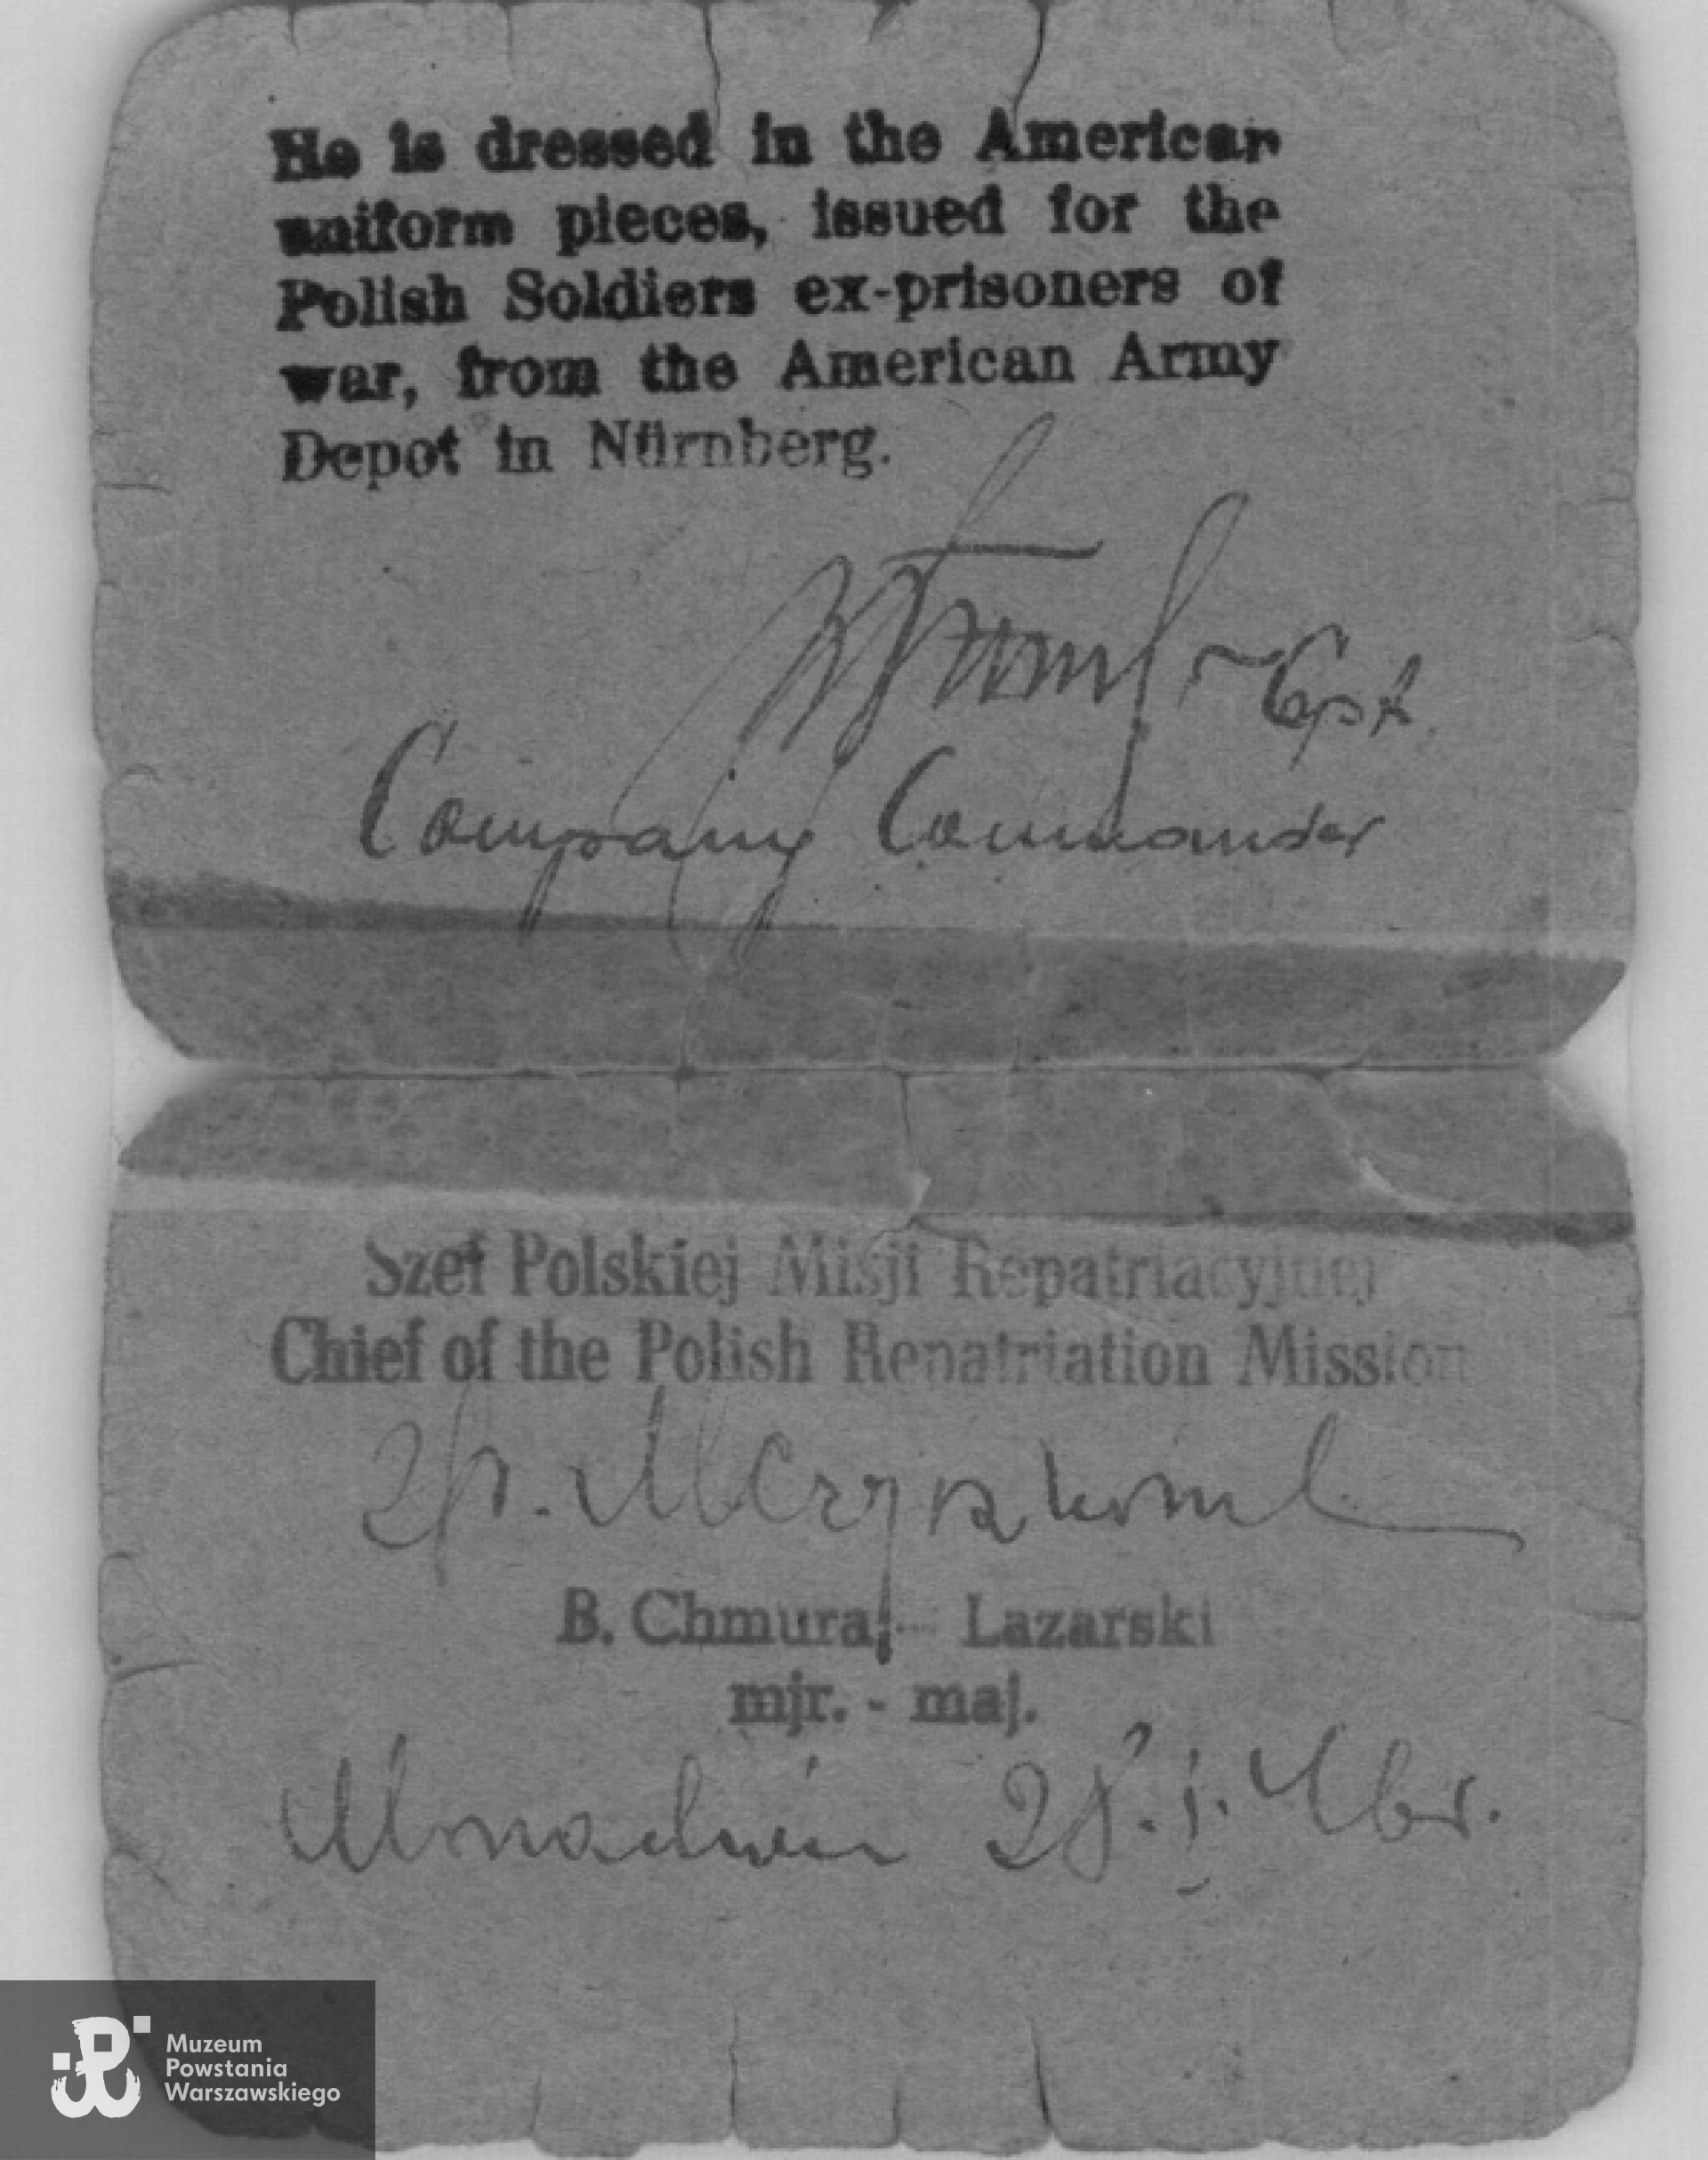 He is dressed in the American
uniform pieces, issued for the
Polish Soldiers ex-prisoners of
war, from the American Army
Depot in Nürnberg.
Cpt.
Company Commander
Szef Polskiej Misji Repatriacyjnej
Chief of the Polish Repatriation Mission
B. Chmura - Lazarski
mjr. - maj.
28.
Muzeum
Powstania
Warszawskiego